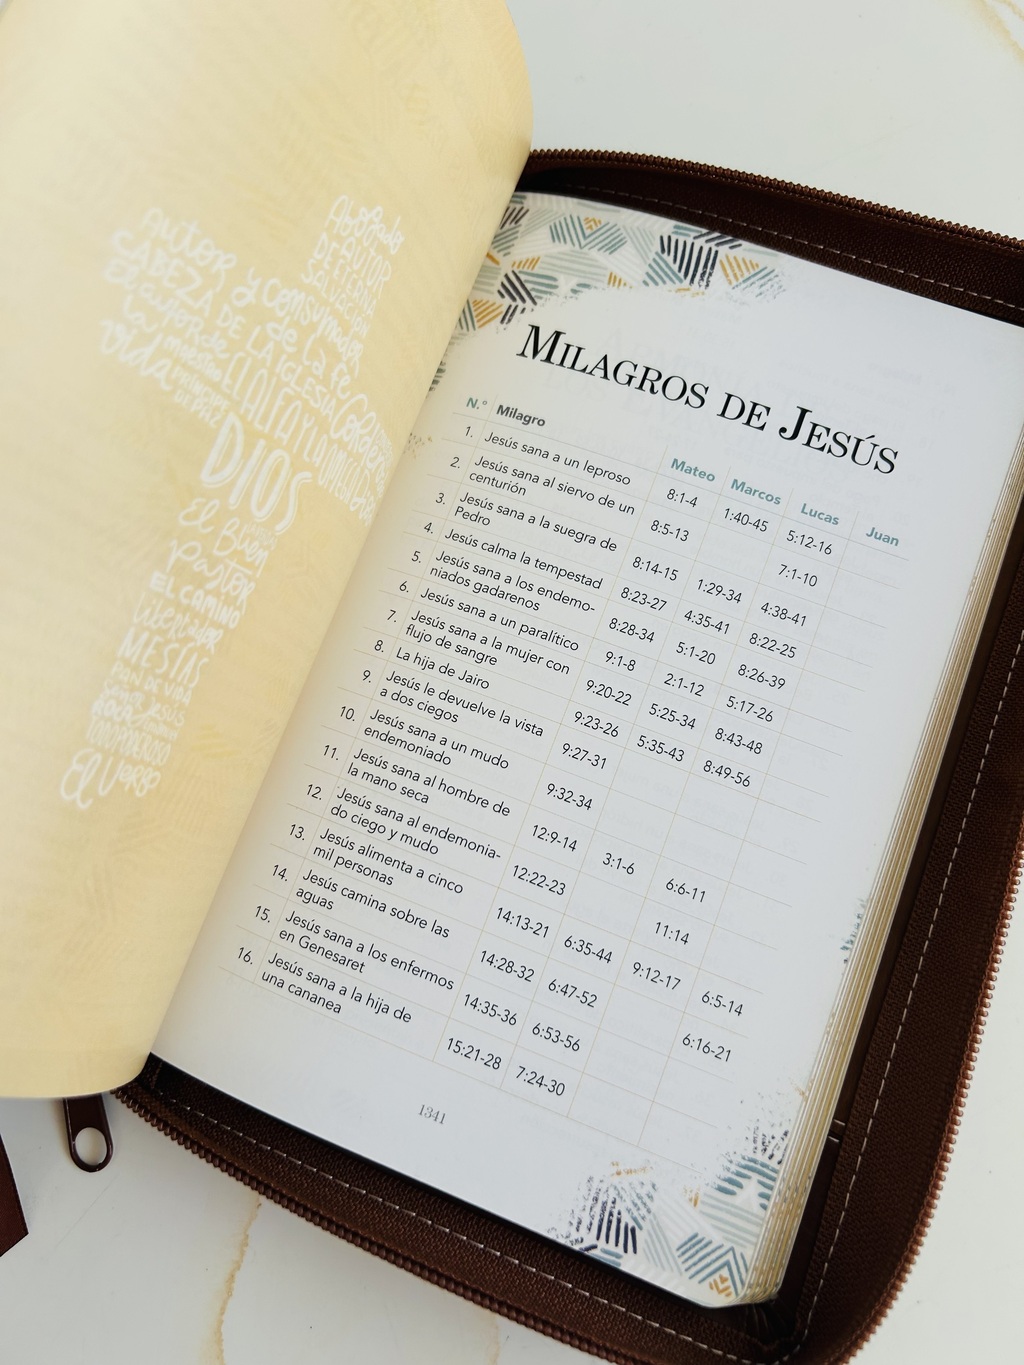 Abogado
DE AUTOR
DE ETERNA
SALVACIÓN
AUTOR y consumador
de la fe
CABEZA DE LA IGLESIA
Cordero
de Dios
vida
PRÍNCIPE
DE PAZ
EL ALFA
DIOS
El Buen
Pastor
EL CAMINO
Libertador
MESÍAS
PAN DE VIDA
JESÚS
ROCA
TODOPODEROSO
El Verbo
MILAGROS DE JESÚS
N.° Milagro Mateo Marcos Lucas Juan
1. Jesús sana a un leproso 8:1-4 1:40-45 5:12-16
2. Jesús sana al siervo de un
centurión 8:5-13 7:1-10
3. Jesús sana a la suegra de
Pedro 8:14-15 1:29-34 4:38-41
4. Jesús calma la tempestad 8:23-27 4:35-41 8:22-25
5. Jesús sana a los endemo-
niados gadarenos 8:28-34 5:1-20 8:26-39
6. Jesús sana a un paralítico 9:1-8 2:1-12 5:17-26
7. Jesús sana a la mujer con
flujo de sangre 9:20-22 5:25-34 8:43-48
8. La hija de Jairo 9:23-26 5:35-43 8:49-56
9. Jesús le devuelve la vista
a dos ciegos 9:27-31
10. Jesús sana a un mudo
endemoniado 9:32-34
11. Jesús sana al hombre de
la mano seca 12:9-14 3:1-6 6:6-11
12. Jesús sana al endemonia-
do ciego y mudo 12:22-23 11:14
13. Jesús alimenta a cinco
mil personas 14:13-21 6:35-44 9:12-17 6:5-14
14. Jesús camina sobre las
aguas 14:28-32 6:47-52 6:16-21
15. Jesús sana a los enfermos
en Genesaret 14:35-36 6:53-56
16. Jesús sana a la hija de
una cananea 15:21-28 7:24-30
1341